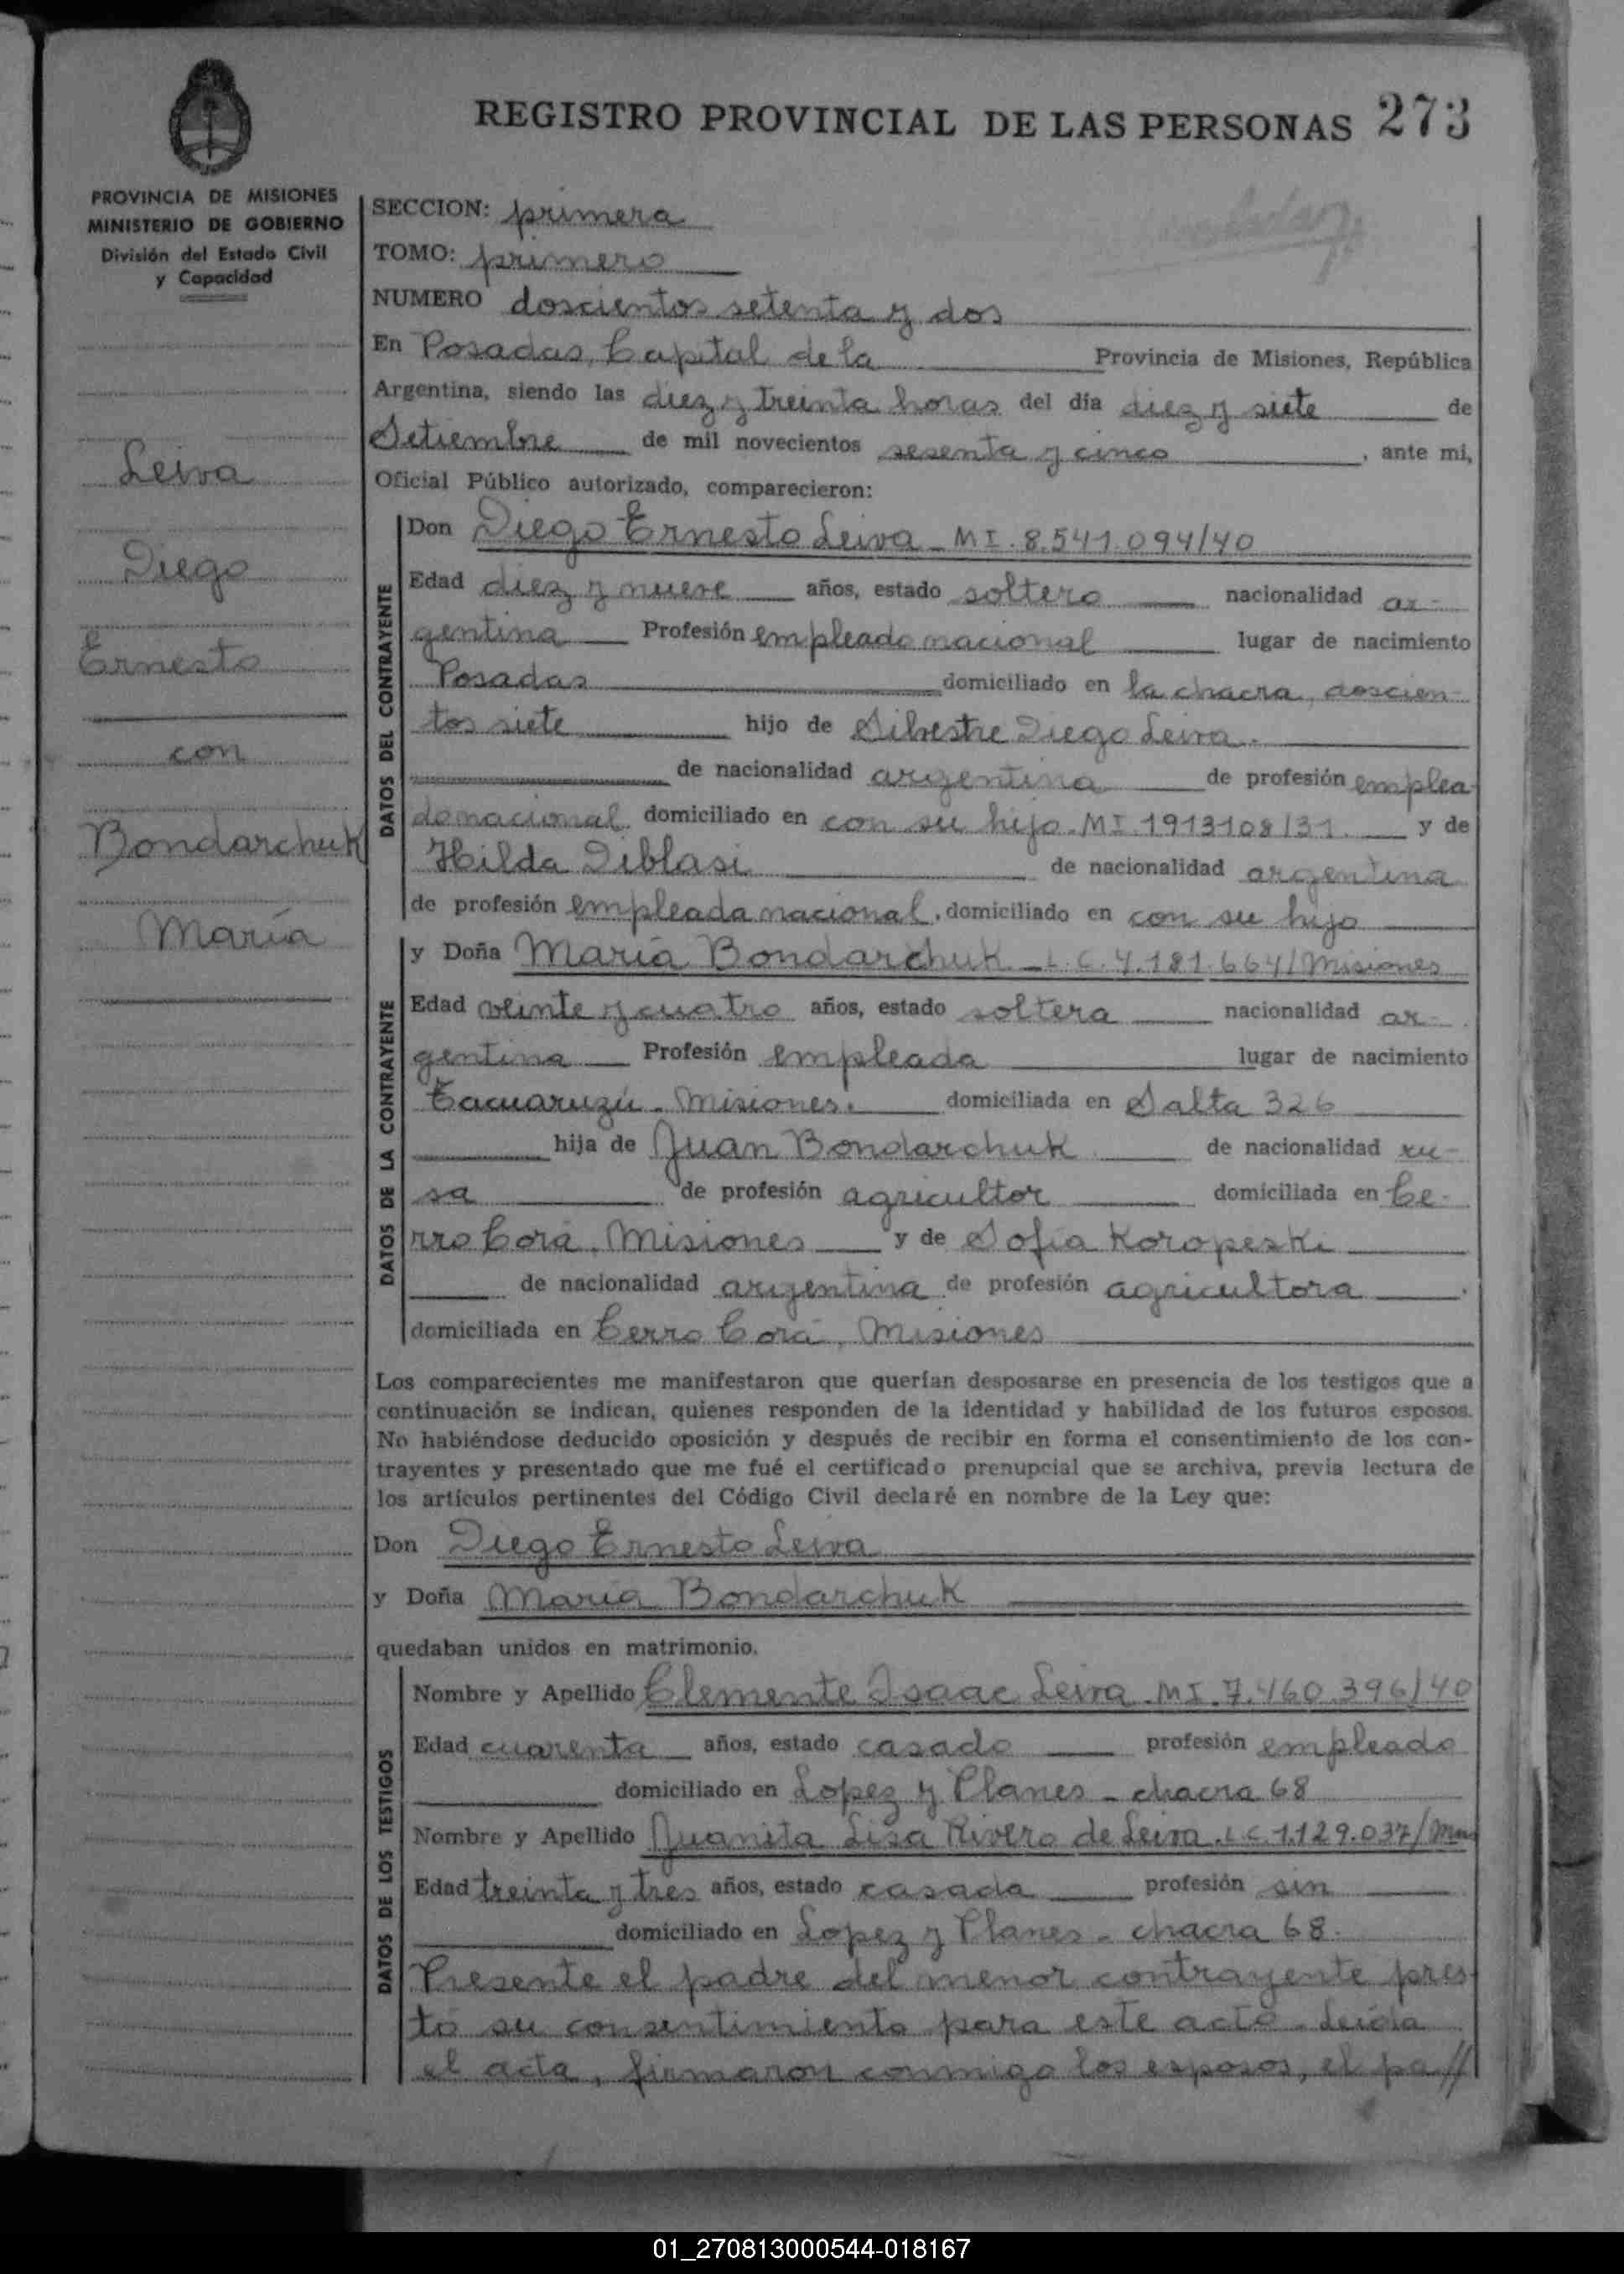 REGISTRO PROVINCIAL DE LAS PERSONAS 273
PROVINCIA DE MISIONES
MINISTERIO DE GOBIERNO
División del Estado Civil
y Capacidad
Leiva
Diego
Ernesto
con
Bondarchuk
María
SECCION: primera
TOMO: primero
NUMERO doscientos setenta y dos
En Posadas, Capital de la Provincia de Misiones, República
Argentina, siendo las diez y treinta horas del día diez y siete de
Setiembre de mil novecientos sesenta y cinco, ante mi,
Oficial Público autorizado, comparecieron:
DATOS DEL CONTRAYENTE
Don Diego Ernesto Leiva - MI. 8.541.094/40
Edad diez y nueve años, estado soltero nacionalidad ar-
gentina Profesión empleado nacional lugar de nacimiento
Posadas domiciliado en la chacra, doscien-
tos siete hijo de Silvestre Diego Leiva.
de nacionalidad argentina de profesión emplea
do nacional domiciliado en con su hijo. MI 1913108/31. y de
Hilda Diblasi de nacionalidad argentina
de profesión empleada nacional, domiciliado en con su hijo
DATOS DE LA CONTRAYENTE
y Doña María Bondarchuk - L.C. 4.181.664/Misiones
Edad veinte y cuatro años, estado soltera nacionalidad ar-
gentina Profesión empleada lugar de nacimiento
Tacuaruzú - Misiones. domiciliada en Salta 326
hija de Juan Bondarchuk de nacionalidad ru-
sa de profesión agricultor domiciliada en Ce-
rro Corá, Misiones y de Sofía Koropeski
de nacionalidad argentina de profesión agricultora.
domiciliada en Cerro Corá, Misiones
Los comparecientes me manifestaron que querían desposarse en presencia de los testigos que a
continuación se indican, quienes responden de la identidad y habilidad de los futuros esposos.
No habiéndose deducido oposición y después de recibir en forma el consentimiento de los con-
trayentes y presentado que me fué el certificado prenupcial que se archiva, previa lectura de
los artículos pertinentes del Código Civil declaré en nombre de la Ley que:
Don Diego Ernesto Leiva
y Doña María Bondarchuk
quedaban unidos en matrimonio.
DATOS DE LOS TESTIGOS
Nombre y Apellido Clemente Isaac Leiva. MI. 7.460.396/40
Edad cuarenta años, estado casado profesión empleado
domiciliado en Lopez y Planes - chacra 68
Nombre y Apellido Juanita Lisa Rivero de Leiva. LC 1.129.037/Mns
Edad treinta y tres años, estado casada profesión sin
domiciliado en Lopez y Planes - chacra 68.
Presente el padre del menor contrayente pres-
tó su consentimiento para este acto. Leída
el acta, firmaron conmigo los esposos, el pa//
01_270813000544-018167